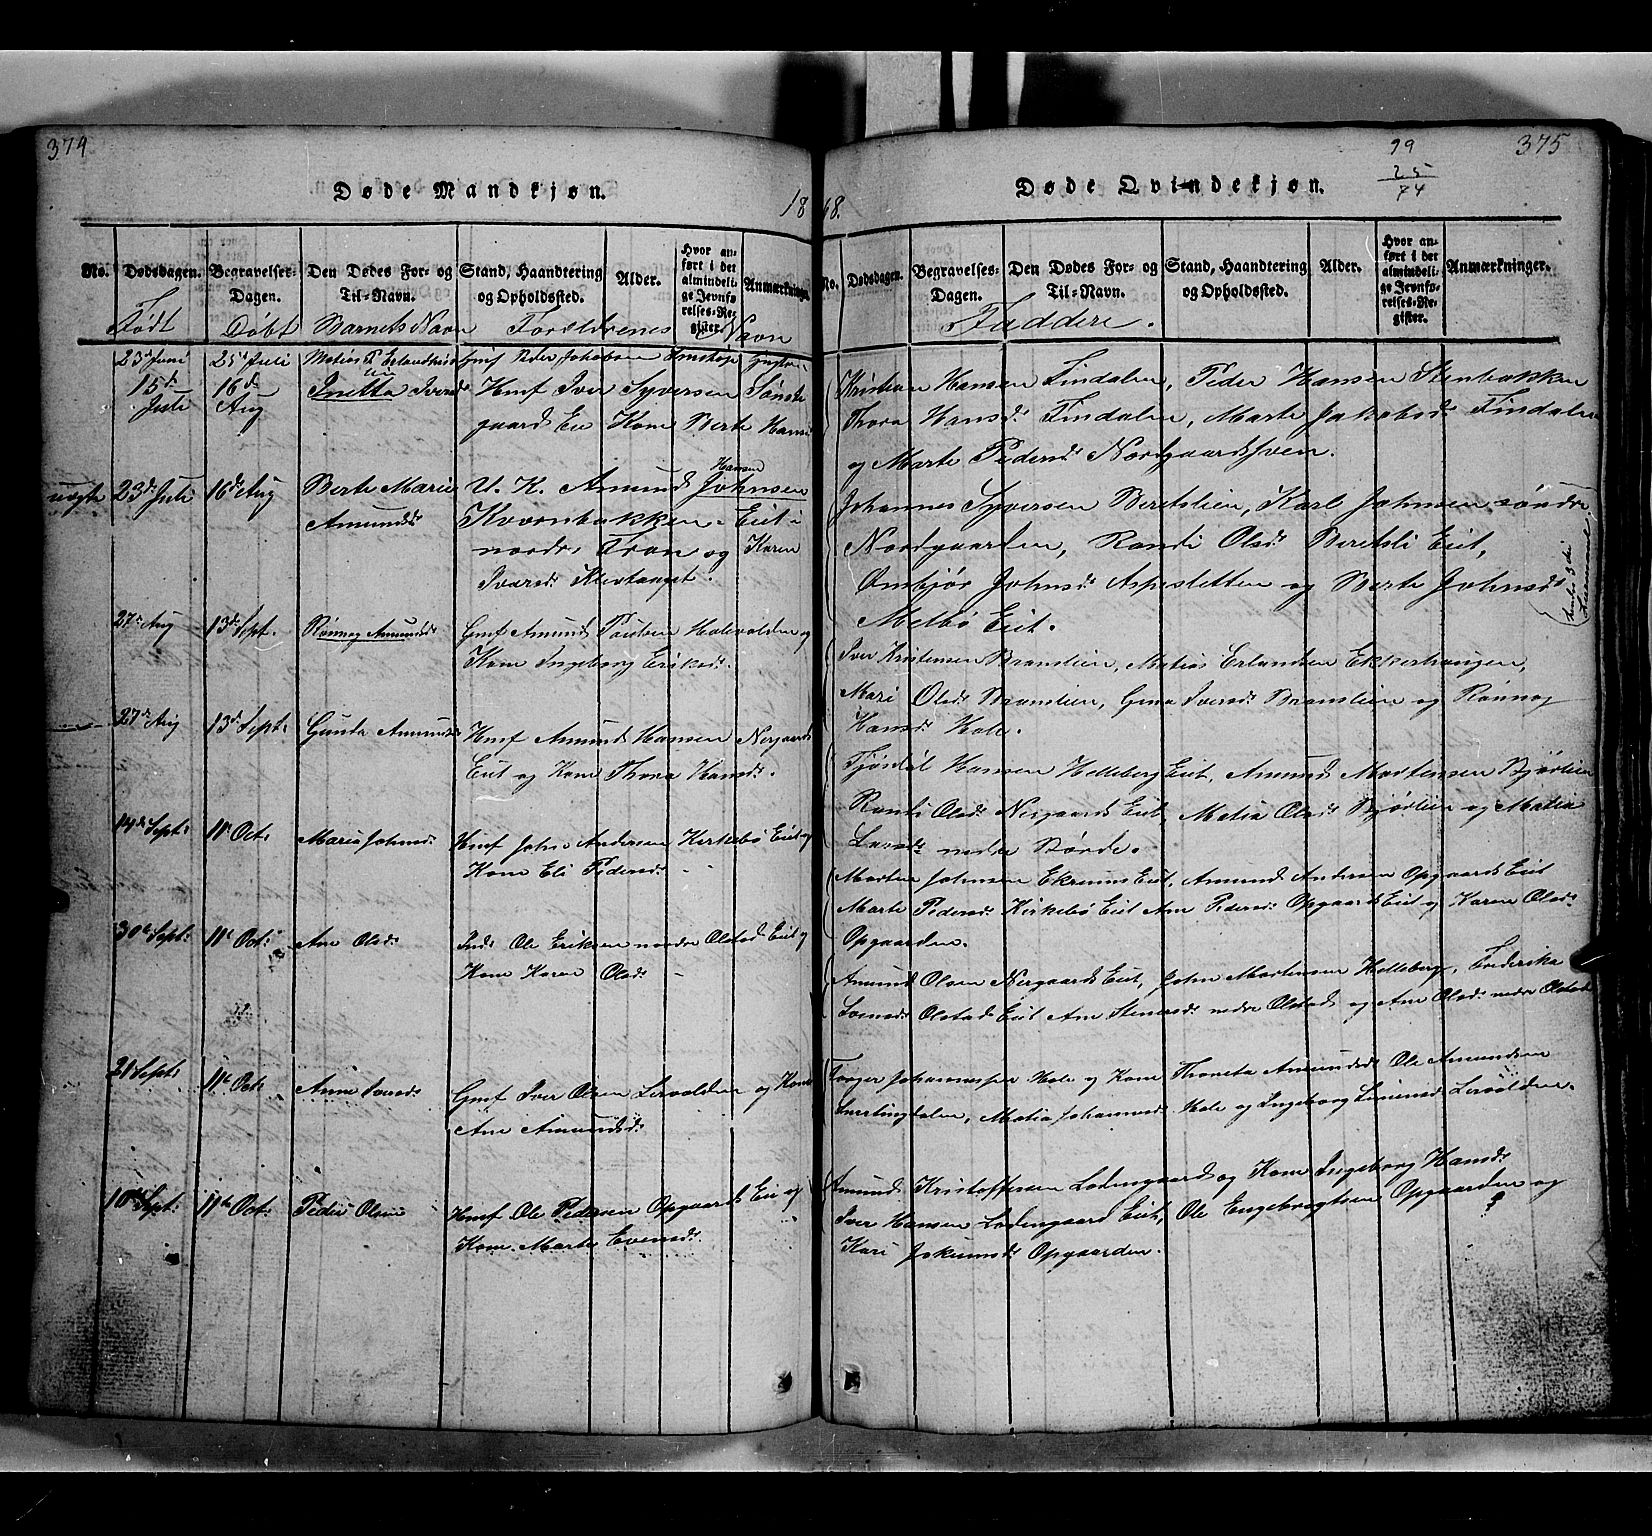 374
Døde Mandkjøn.
18
No.
Dødsdagen.
Begravelses-
Dagen.
Den Dødes For- og
Til-Navn.
Stand, Haandtering
og Opholdssted.
Alder.
Hvor an-
ført i det
almindeli-
ge Jevnfø-
relses-Re-
gister.
Anmærkninger.
Født
Døbt
Barnets Navn
Forældrenes Navn
23d Juni
25d Juli
15de
Juli
16d
Aug
Inetta Iversd
Hmf Iver Syversen Sønste
gaard Ei Kone Berte Hansd
uægte
23de Juli
16de Aug
Berte Marie
Amundsd
U. K. Amund Johnsen
Hansen
Kvernbakken. Eiet i
nordre Fron og Karen
Iversd.
27de Aug
13de Sept.
Rønnog Amundsd
Gmf Amund Paulsen og
Kone Ingeborg Eriksd.
27de Aug
13de Sept.
Gunda Amundsd
Hmf Amund Hansen Nergaards
Eiet og Kone Thora Hansd.
14de Sept.
11te Oct.
Maria Johnsd.
Hmf John Andersen Kirkebø Eiet og
Kone Eli Pedersd.
30te Sept.
11te Oct.
Ane Olsd.
Inds Ole Eriksen nordre Olstad Eiet og
Kone Karen Olsd.
21 Sept.
11te Oct.
Anne Iversd
Gmf Iver Olsen Lervolden og Kone
Ane Amundsd.
10de Sept.
11te Oct.
Peder Olsen
Hmf Ole Pedersen Opgaards Ei og
Kone Marte Evensd.
375
99
25
74
Døde Qvindekjøn.
68.
No.
Dødsdagen.
Begravelses-
Dagen.
Den Dødes For- og
Til-Navn.
Stand, Haandtering
og Opholdssted.
Alder.
Hvor an-
ført i det
almindeli-
ge Jevnfø-
relses-Re-
gister.
Anmærkninger.
Faddere.
Kristian Hansen Lindalen, Peder Hansen Stenbakken
Thora Hansd. Lindalen, Marte Jakobsd. Lindalen
og Marte Pedersd.
Johannes Syversen Beretslien, Karl Johnsen søndre
Nordgaarden, Randi Olsd. Beretsli Eiet,
Ombjør Johnsd. Aspesletten og Berte Johnsd
Melbø Eiet.
Iver Kristensen Bramlien, Matias Erlandsen Ekkerhaugen,
Mari Olsd. Bramlien, Gina Iversd. Bramlien og Rønnog
Hansd. Hole.
Hansen Helleberg Eiet, Amund Mortensen Bjørlien
Randi Olsd. Nergaards Eiet, Matia Olsd. Bjørlien og Matia
Larsd. nedre
Morten Johnsen Ekrums Eiet, Amund Andersen Opgaards Eiet
Marte Pedersd. Kirkebø Eiet Ane Pedersd. Opgaards Eiet og Karen Olsd.
Opgaarden.
Amund Olsen Nergaards Eiet, John Mortensen Helleberg, Frederika
Svensd. Olstad Eiet Ane Stenersd. nedre Olstad og Ane Olsd. nedre Olstad
Johannesen Hole og Kone Thoreta Amundsd. Ole Amundsen
Matia Johannesd. Hole og Ingeborg Lervolden.
Amund Kristoffersen Lodengaard og Kone Ingeborg Hansd.
Iver Hansen Lodengaard Eiet, Ole Engebregtsen Opgaarden og
Kari Jokumsd. Opgaarden.